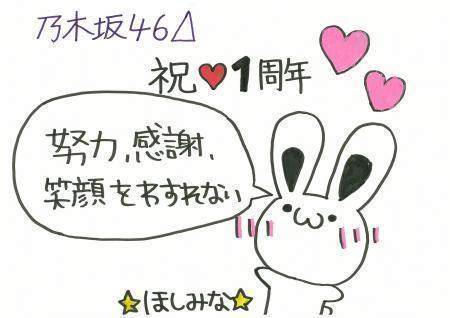 乃木坂46△
祝♥1周年
努力、感謝、
笑顔をわすれない
☆ほしみな☆